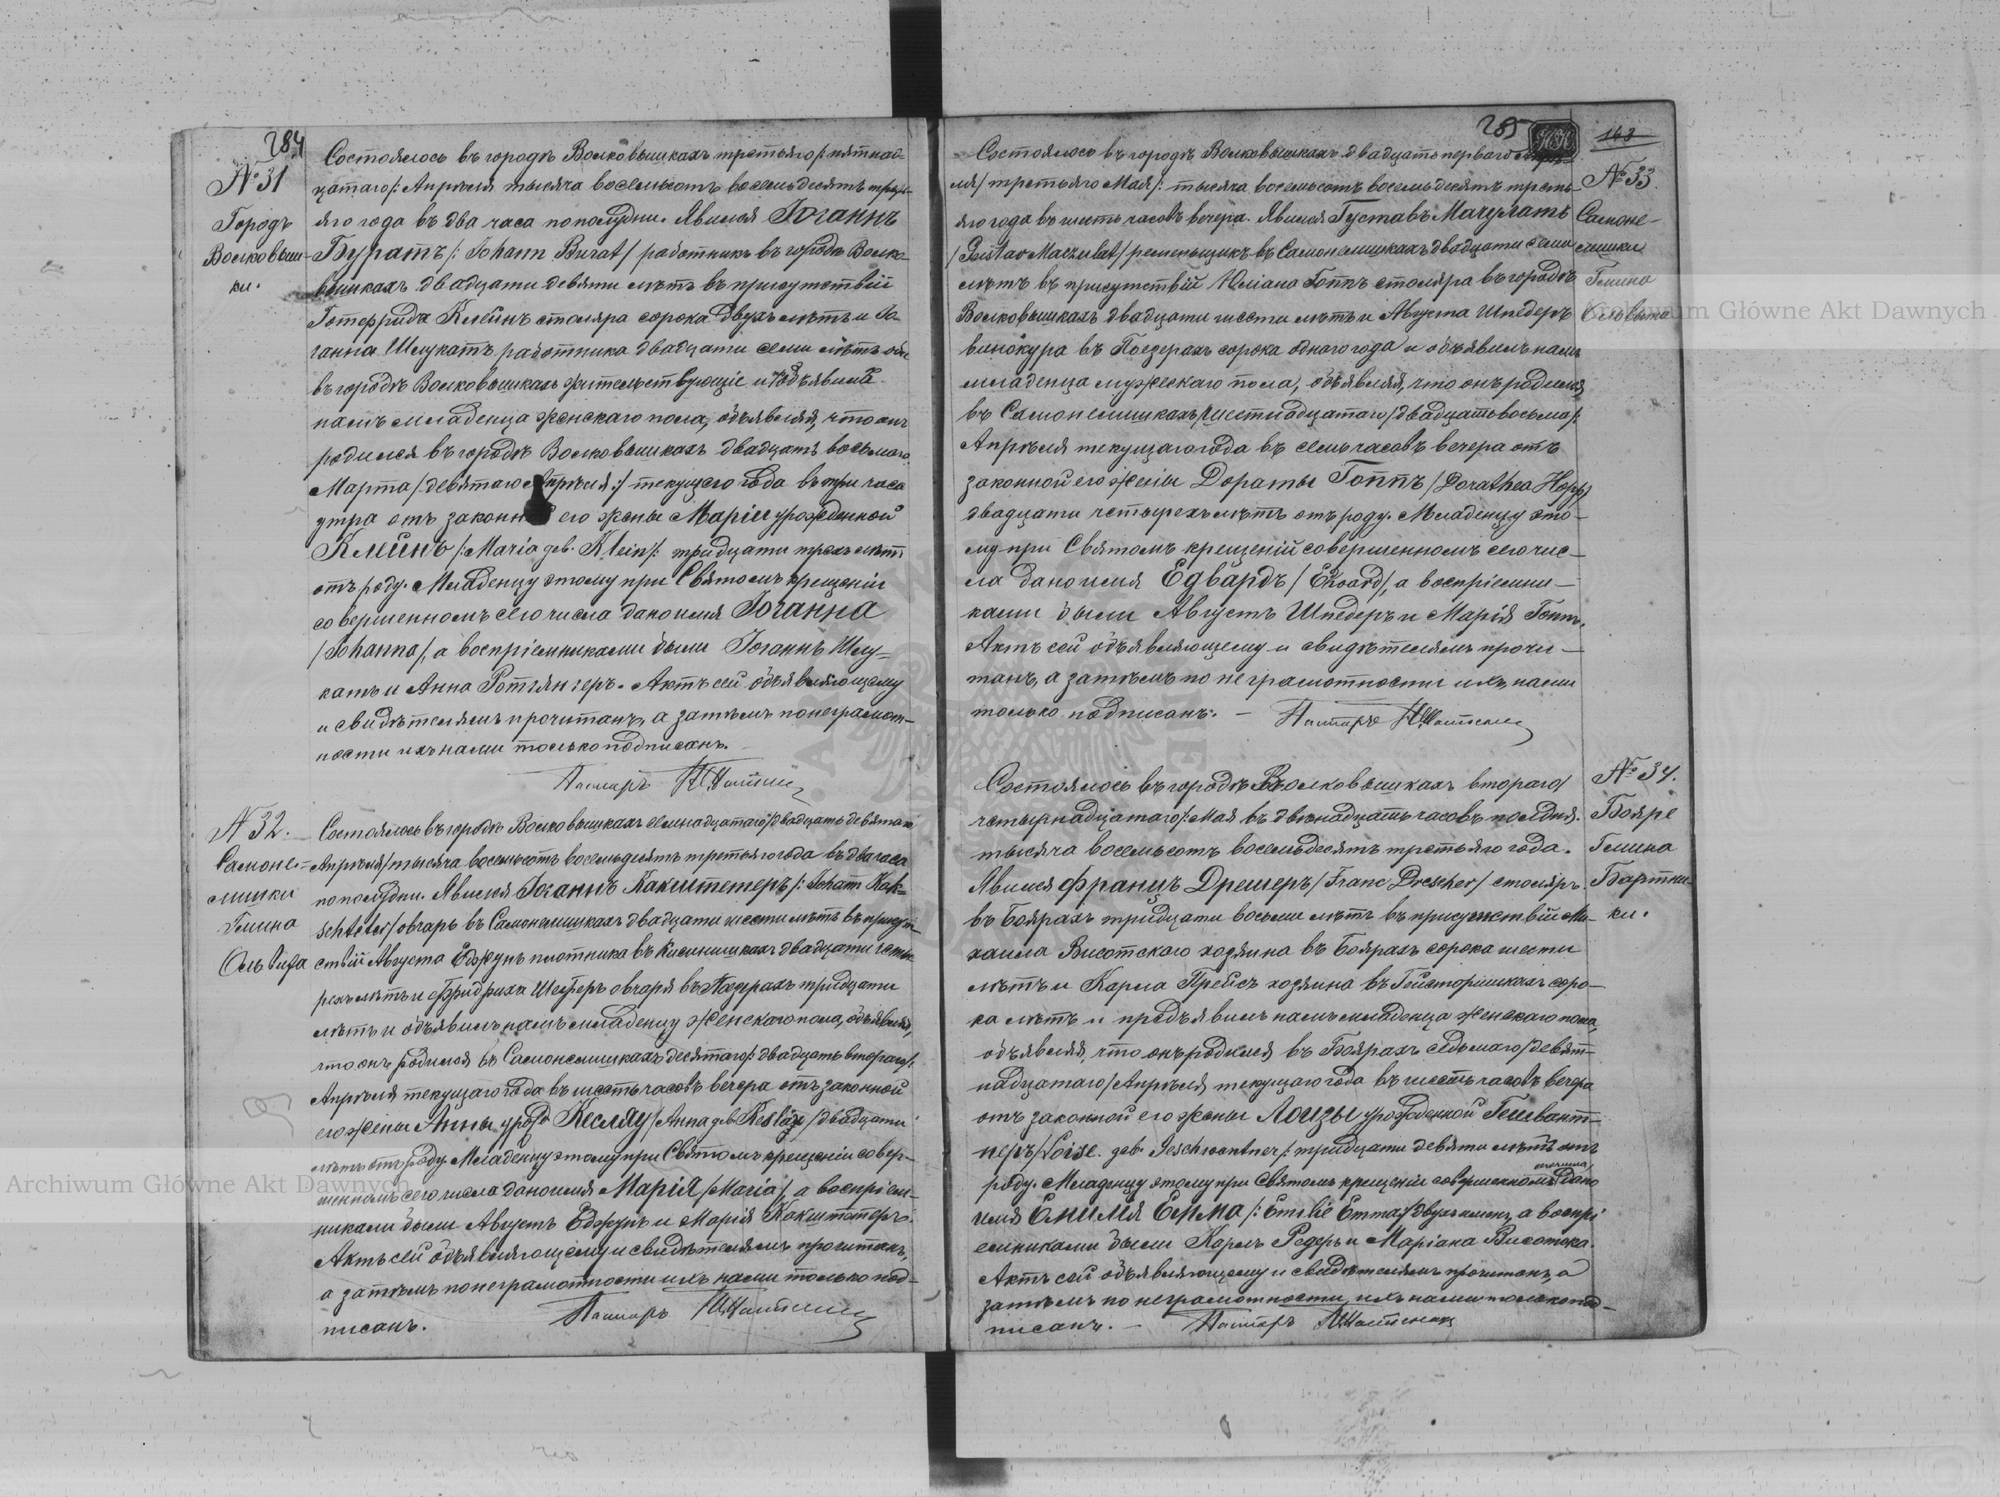 284
№ 31
Городъ
Волковыш-
ки.
Состоялось въ городѣ Волковышкахъ третьяго /: пятнад-
цатаго /: Апрѣля тысяча восемьсотъ восемьдесятъ треть-
яго года въ два часа пополудни. Явился Іоганнъ
Буратъ /: Johann Burat / работникъ въ городѣ Волко-
вышкахъ двадцати девяти лѣтъ въ присутствіи
Готфрида Клейнъ столяра сорока двухъ лѣтъ и Іо-
ганна Шлукатъ работника двадцати семи лѣтъ оба
въ городѣ Волковышкахъ жительствующіе и объявилъ
намъ младенца женскаго пола, объявляя, что онъ
родился въ городѣ Волковышкахъ двадцать восьмого
Марта /: девятаго Апрѣля :/ текущего года въ три часа
утра отъ законной его жены Маріи урожденной
Клейнъ /: Maria geb. Klein /: тридцати трехъ лѣтъ
отъ роду. Младенцу этому при Святомъ крещеніи
совершенномъ сего числа дано имя Іоганна
/ Johanna /, а воспріемниками были Іоганнъ Шлу-
катъ и Анна Ротгянгеръ. Актъ сей объявляющему
и свидѣтелямъ прочитанъ, а затѣмъ по неграмот-
ности ихъ нами только подписанъ.
Пасторъ
№ 32.
Самоне-
лишки
Гмина
Ольвита
Состоялось въ городѣ Волковышкахъ семнадцатаго / двадцать девятаго
Апрѣля / тысяча восемьсотъ восемьдесятъ третьяго года въ два часа
пополудни. Явился Іоганнъ Какштетеръ /: Johann Kak-
schteter / овчаръ въ Самонелишкахъ двадцати шести лѣтъ въ присут-
ствіи Августа Еджунъ плотника въ двадцати четы-
рехъ лѣтъ и Фридриха Шеферъ овчаря въ Поезерахъ тридцати
лѣтъ и объявилъ намъ младенцу женскаго пола, объявляя,
что онъ родился въ Самонелишкахъ десятаго /: двадцать втораго /:
Апрѣля текущаго года въ шесть часовъ вечера отъ законной
его жены Анны урожд Кесляу / Anna geb. Keslau / двадцати
лѣтъ отъ роду. Младенцу этому при Святомъ крещеніи совер-
шенномъ сего числа дано имя Марія / Maria /, а воспріем-
никами были Августъ Еджунъ и Марія Какштетеръ.
Актъ сей объявляющему и свидѣтелямъ прочитанъ,
а затѣмъ по неграмотности ихъ нами только под-
писанъ.
Пасторъ
285
163
№ 33.
Самоне-
лишки
Гмина
Ольвита
Состоялось въ городѣ Волковышкахъ двадцать перваго Апрѣ-
ля / третьяго Мая /: тысяча восемьсотъ восемьдесятъ треть-
яго года въ шесть часовъ вечера. Явился Густавъ Мачулатъ
/ Gustav Maczulat / ременьщикъ въ Самонелишкахъ двадцати семи
лѣтъ въ присутствіи Юліана Гоппъ столяра въ городѣ
Волковышкахъ двадцати шести лѣтъ и Августа Шпедеръ
винокура въ Поезерахъ сорока одного года и объявилъ намъ
младенца мужескаго пола, объявляя, что онъ родился
въ Самонелишкахъ / шестнадцатаго / двадцать восьма /:
Апрѣля текущаго года въ семь часовъ вечера отъ
законной его жены Дораты Гоппъ / Dorathea Hopp /
двадцати четырехъ лѣтъ отъ роду. Младенцу это-
му при Святомъ крещеніи совершенномъ сего чис-
ла дано имя Едвардъ / Edvard /, а воспріемни-
ками были Августъ Шпедеръ и Марія Гоппъ.
Актъ сей объявляющему и свидѣтелямъ прочи-
танъ, а затѣмъ по неграмотности ихъ, нами
только подписанъ. -
Пасторъ
№ 34.
Бояре
Гмина
Бартни-
ки.
Состоялось въ городѣ Волковышкахъ второго /
четырнадцатаго /: Мая въ двѣнадцать часовъ по полдня.
тысяча восемьсотъ восемьдесятъ третьяго года.
Явился Францъ Дрешеръ / Franc Drescher / столяръ
въ Боярахъ тридцати восьми лѣтъ въ присутствіи Ми-
хаила Висотскаго хозяина въ Боярахъ сорока шести
лѣтъ и Карла Прейсъ хозяина въ Гейсторишкахъ соро-
ка лѣтъ и предъявилъ намъ младенца женскаго пола,
объявляя, что онъ родился въ Боярахъ седьмаго / девят-
надцатаго / Апрѣля текущаго года въ шесть часовъ вечера
отъ законной его жены Лоизы урожденной Гешвант-
неръ / Loise. geb. Geschwentner /: тридцати девяти лѣтъ отъ
роду. Младенцу этому при Святомъ крещеніи совершенномъ сего числа дано
имя Емилія Емма /: Emilie Emma / двухъ именъ, а воспрі
емниками были Карлъ Редеръ и Маріана Висотска.
Актъ сей объявляющему и свидѣтелямъ прочитанъ, а
затѣмъ по неграмотности ихъ нами только под-
писанъ. -
Пасторъ
Archiwum Główne Akt Dawnych
Archiwum Główne Akt Dawnych